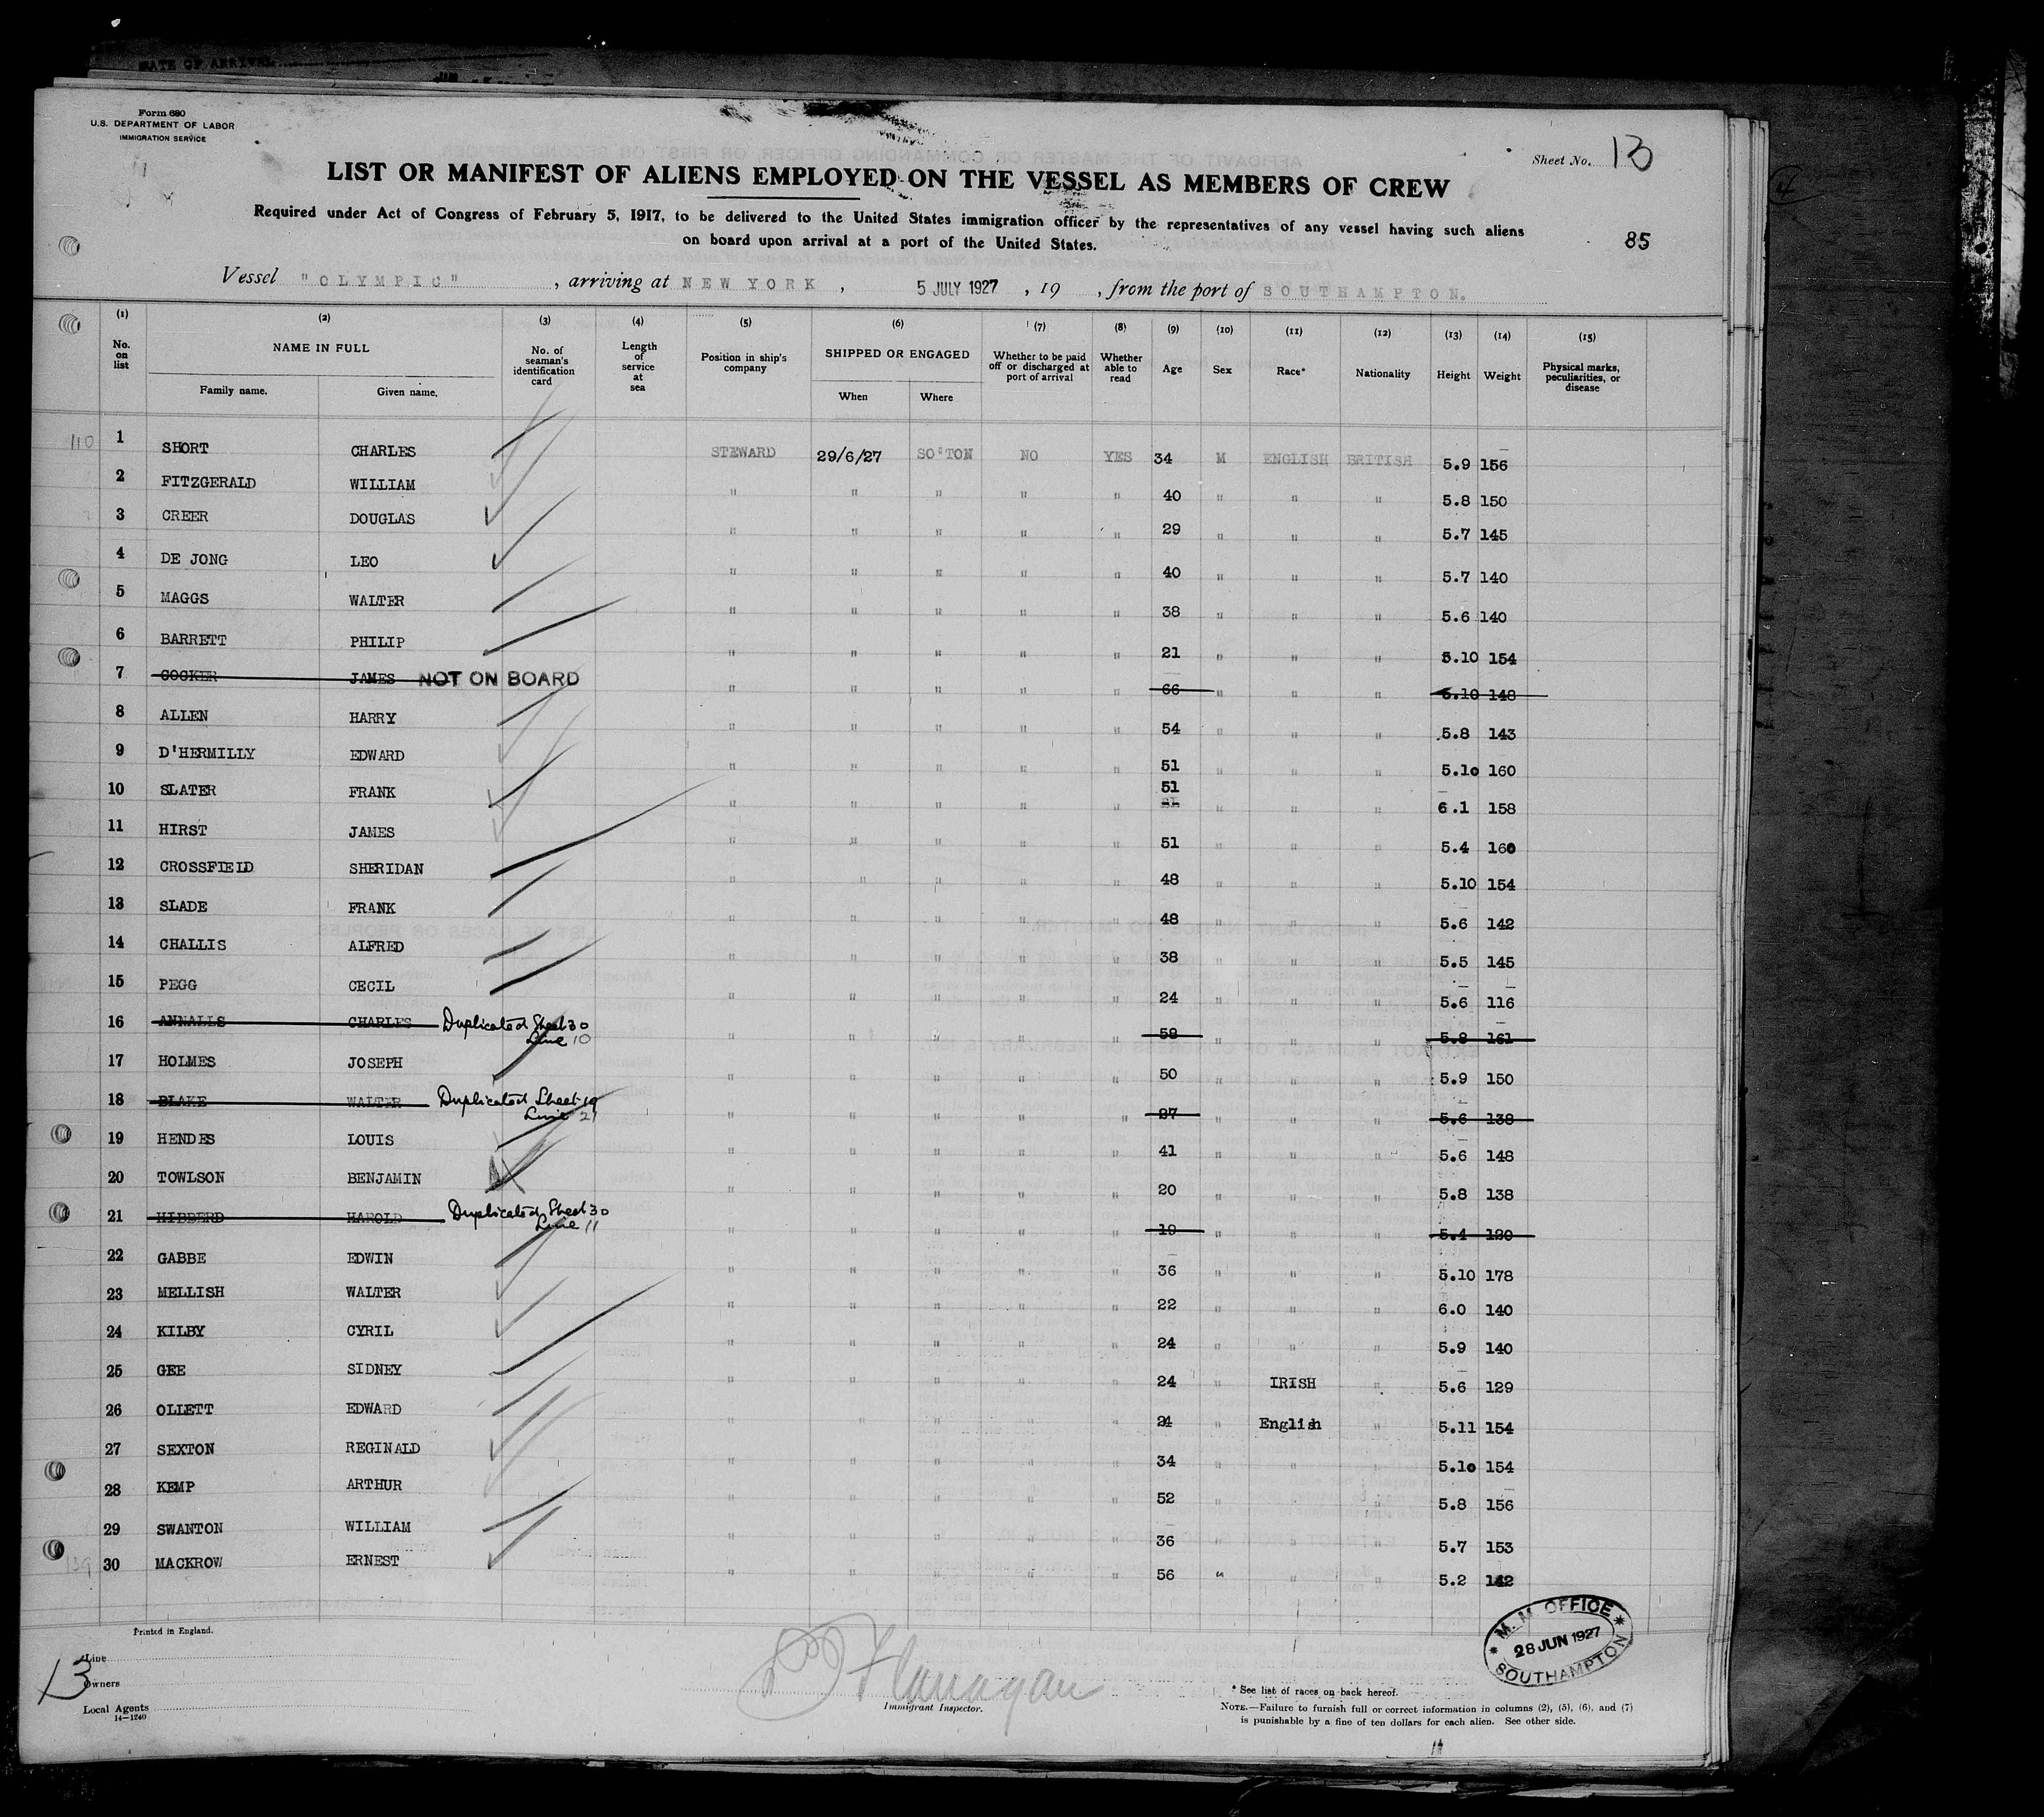 Form 680
U.S. DEPARTMENT OF LABOR
IMMIGRATION SERVICE
Sheet No. 13
LIST OR MANIFEST OF ALIENS EMPLOYED ON THE VESSEL AS MEMBERS OF CREW
Required under Act of Congress of February 5, 1917, to be delivered to the United States immigration officer by the representatives of any vessel having such aliens
on board upon arrival at a port of the United States.
85
Vessel "OLYMPIC", arriving at NEW YORK, 5 JULY 1927, 19 , from the port of SOUTHAMPTON.
(1) (2) (3) (4) (5) (6) (7) (8) (9) (10) (11) (12) (13) (14) (15)
No. on list NAME IN FULL Family name. Given name. No. of seaman's identification card Length of service at sea Position in ship's company SHIPPED OR ENGAGED When Where Whether to be paid off or discharged at port of arrival Whether able to read Age Sex Race* Nationality Height Weight Physical marks, peculiarities, or disease
110 1 SHORT CHARLES STEWARD 29/6/27 SO'TON NO YES 34 M ENGLISH BRITISH 5.9 156
2 FITZGERALD WILLIAM " " " " " 40 " " " 5.8 150
3 CREER DOUGLAS " " " " " 29 " " " 5.7 145
4 DE JONG LEO " " " " " 40 " " " 5.7 140
5 MAGGS WALTER " " " " " 38 " " " 5.6 140
6 BARRETT PHILIP " " " " " 21 " " " 5.10 154
7 COCKER JAMES NOT ON BOARD " " " " " 66 " " " 5.10 148
8 ALLEN HARRY " " " " " 54 " " " 5.8 143
9 D'HERMILLY EDWARD " " " " " 51 " " " 5.10 160
10 SLATER FRANK " " " " " 51 " " " 6.1 158
11 HIRST JAMES " " " " " 51 " " " 5.4 160
12 CROSSFIELD SHERIDAN " " " " " 48 " " " 5.10 154
13 SLADE FRANK " " " " " 48 " " " 5.6 142
14 CHALLIS ALFRED " " " " " 38 " " " 5.5 145
15 PEGG CECIL " " " " " 24 " " " 5.6 116
16 ANNALLS CHARLES Duplicated Sheet 30 Line 10 " " " " " 58 " " " 5.8 161
17 HOLMES JOSEPH " " " " " 50 " " " 5.9 150
18 BLAKE WALTER Duplicated Sheet 19 Line 21 " " " " " 27 " " " 5.6 138
19 HENDES LOUIS " " " " " 41 " " " 5.6 148
20 TOWLSON BENJAMIN " " " " " 20 " " " 5.8 138
21 HIBBERD HAROLD Duplicated Sheet 30 Line 11 " " " " " 19 " " " 5.4 120
22 GABBE EDWIN " " " " " 36 " " " 5.10 178
23 MELLISH WALTER " " " " " 22 " " " 6.0 140
24 KILBY CYRIL " " " " " 24 " " " 5.9 140
25 GEE SIDNEY " " " " " 24 " IRISH " 5.6 129
26 OLLETT EDWARD " " " " " 24 " English " 5.11 154
27 SEXTON REGINALD " " " " " 34 " " " 5.10 154
28 KEMP ARTHUR " " " " " 52 " " " 5.8 156
29 SWANTON WILLIAM " " " " " 36 " " " 5.7 153
139 30 MACKROW ERNEST " " " " " 56 " " " 5.2 142
Printed in England.
13
Line
Owners
Local Agents
14—1240
Flanagan
Immigrant Inspector.
M. M. OFFICE
28 JUN 1927
SOUTHAMPTON
* See list of races on back hereof.
NOTE.—Failure to furnish full or correct information in columns (2), (5), (6), and (7)
is punishable by a fine of ten dollars for each alien. See other side.